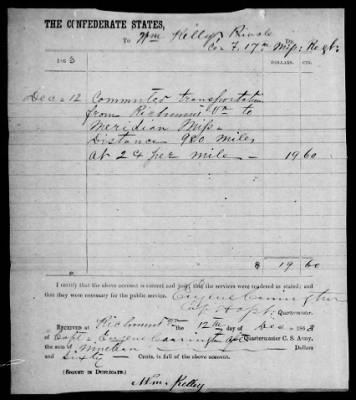 THE CONFEDERATE STATES,
To Wm Kelly Private Dr.
Co F, 17th Miss: Regt.
1863 DOLLARS. CTS.
Dec 12 Commuted transportation
from Richmond Va to
Meridian Miss
Distance 980 miles
at 2¢ per mile — 19 60
$ 19 60
I certify that the above account is correct and just; that the services were rendered as stated; and
that they were necessary for the public service.
Eugene Carrington
Capt. Quartermaster.
RECEIVED at Richmond Va the 12th day of Dec 1863
of Capt Eugene Carrington Quartermaster C. S. Army,
the sum of Nineteen Dollars
and Sixty Cents, in full of the above account.
(SIGNED IN DUPLICATE.)
Wm. Kelley